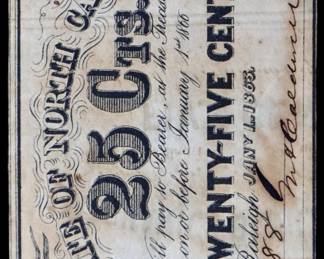 TE OF NORTH CA
25 Cts.
ll pay to Bearer, at the Treasu
on or before January 1st 1866
WENTY-FIVE CENT
Raleigh JANY 1, 1863.
88